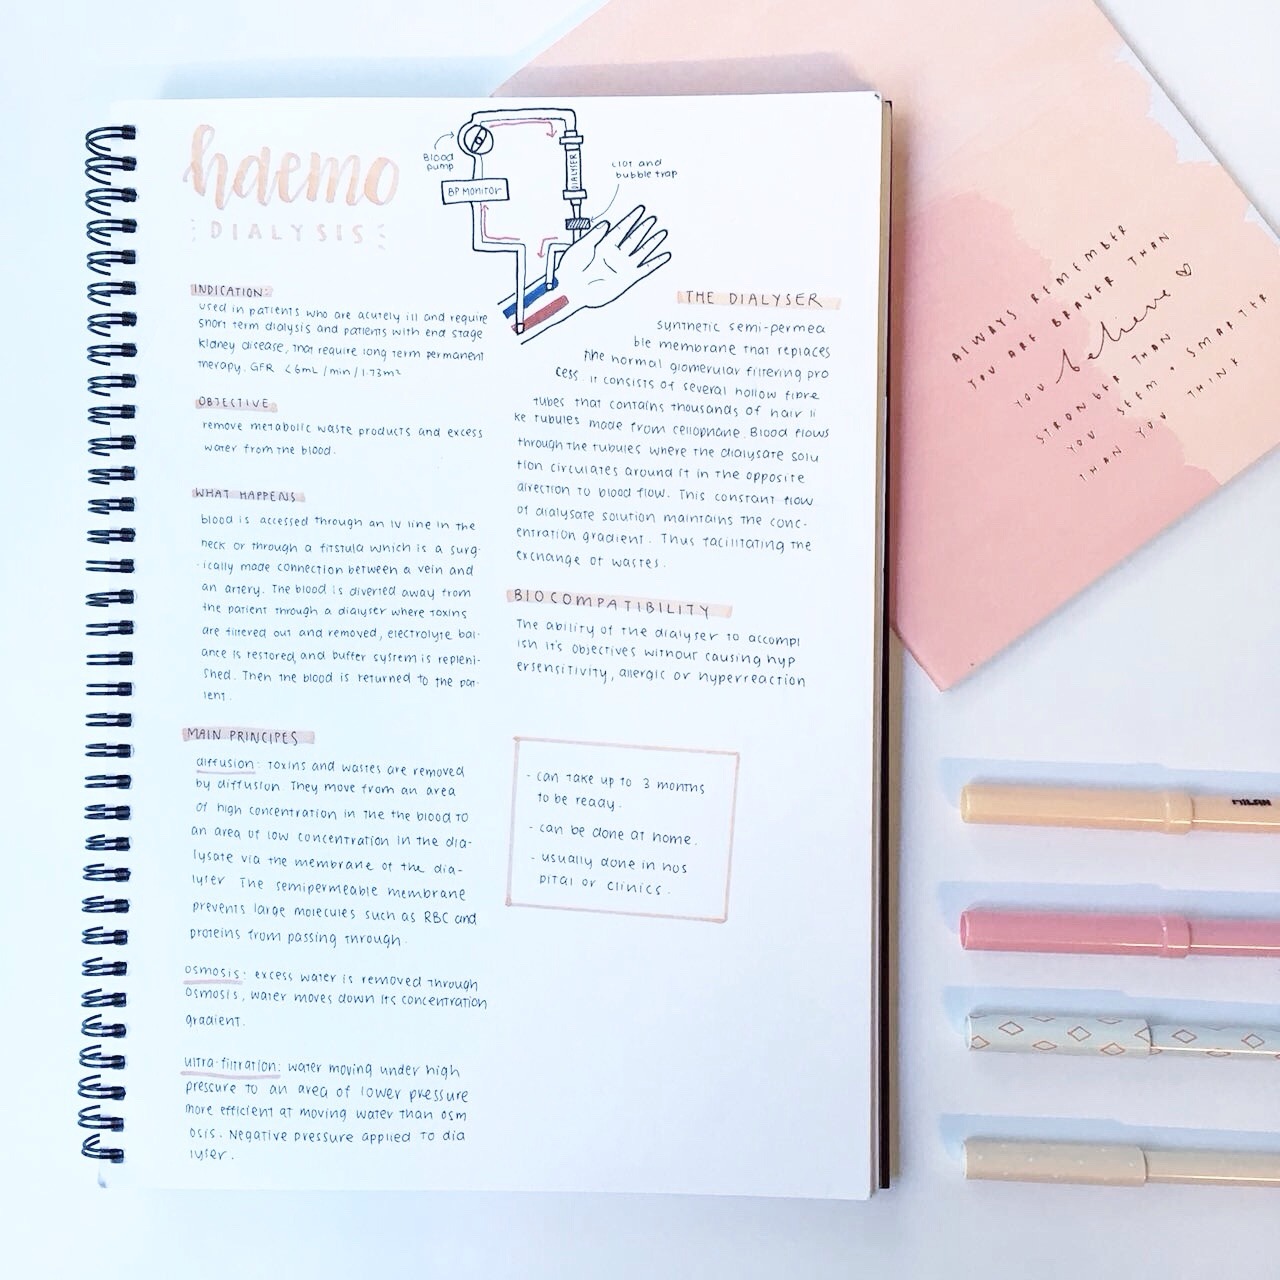 haemo
DIALYSIS
Blood
pump
BP MONITOR
DIALYSER
clot and
bubble trap
INDICATION:
used in patients who are acutely ill and require
short term dialysis and patients with end stage
kidney disease, that require long term permanent
therapy. GFR <6mL/min/1.73m²
OBJECTIVE
remove metabolic waste products and excess
water from the blood.
WHAT HAPPENS
blood is accessed through an IV line in the
neck or through a fitstula which is a surg-
ically made connection between a vein and
an artery. The blood is diverted away from
the patient through a dialyser where toxins
are filtered out and removed, electrolyte bal-
ance is restored, and buffer system is repleni-
shed. Then the blood is returned to the pat-
ient.
MAIN PRINCIPES
diffusion: toxins and wastes are removed
by diffusion. They move from an area
of high concentration in the the blood to
an area of low concentration in the dia-
lysate via the membrane of the dia-
lyser. The semipermeable membrane
prevents large molecules such as RBC and
proteins from passing through.
osmosis: excess water is removed through
osmosis, water moves down its concentration
gradient.
ultra-filtration: water moving under high
pressure to an area of lower pressure
more efficient at moving water than osm
osis. Negative pressure applied to dia
lyser.
THE DIALYSER
synthetic semi-permea
ble membrane that replaces
the normal glomerular filtering pro
cess. it consists of several hollow fibre
tubes that contains thousands of hair li
ke tubules made from cellophane. Blood flows
through the tubules where the dialysate solu
tion circulates around it in the opposite
direction to blood flow. This constant flow
of dialysate solution maintains the conc-
entration gradient. Thus facilitating the
exchange of wastes.
BIOCOMPATIBILITY
The ability of the dialyser to accompl
ish it's objectives without causing hyp
ersensitivity, allergic or hyperreaction
- can take up to 3 months
to be ready.
- can be done at home.
- usually done in hos
pital or clinics.
ALWAYS REMEMBER
YOU ARE BRAVER THAN
YOU believe ♡
STRONGER THAN
YOU SEEM + SMARTER
THAN YOU THINK
MILAN